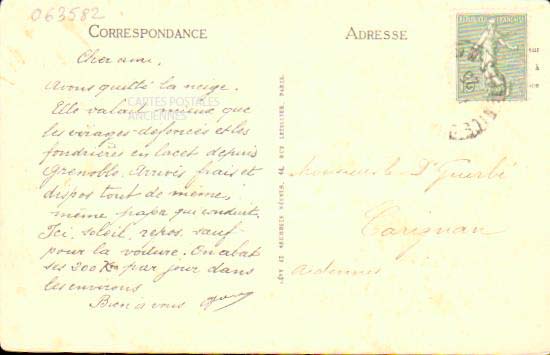 063582
CORRESPONDANCE
ADRESSE
RÉPUBLIQUE FRANÇAISE
Cher ami.
Avons quitté la neige.
Elle valait mieux que
les virages défoncés et les
fondrières en lacet depuis
Grenoble. Arrivés frais et
dispos tout de même,
même papa qui conduit.
Ici, soleil, repos, sauf
pour la voiture. On abat
ses 200 Km par jour dans
les environs
Bien à vous
CARTES POSTALES
ANCIENNES
LÉVY ET NEURDEIN RÉUNIS, 44, RUE LETELLIER, PARIS.
Monsieur le Dr
Carignan
Ardennes